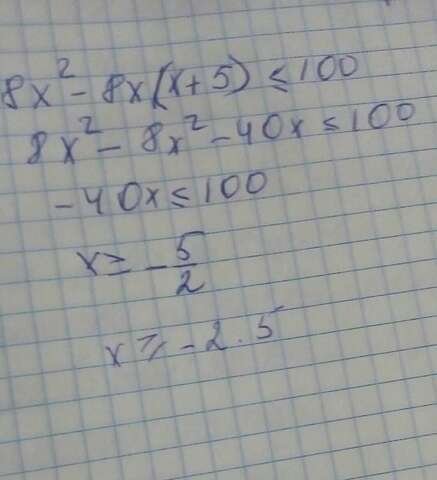 8x² - 8x(x+5) ≤ 100
8x² - 8x² - 40x ≤ 100
-40x ≤ 100
x ≥ -5/2
x ≥ -2.5